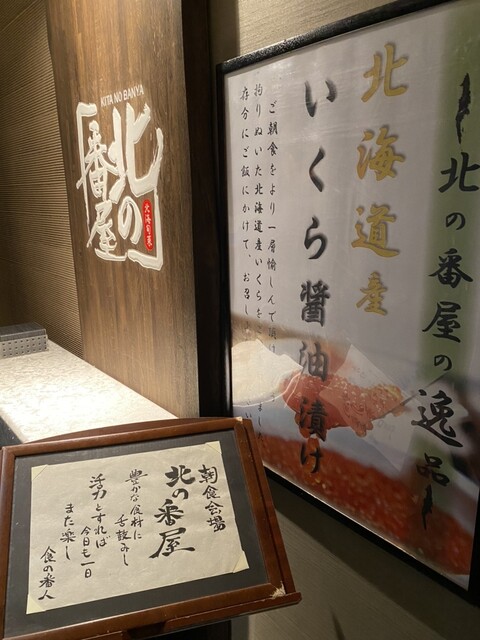 KITA NO BANYA
北の
番屋
北海旬菜
北の番屋の逸品
北海道産
いくら醤油漬け
ご朝食をより一層愉しんで頂
拘りぬいた北海道産いくらをご
存分にご飯にかけて、お召し
朝食会場
北の番屋
豊かな食材に
舌鼓みし
活力とすれば
今日も一日
また楽し
食の番人